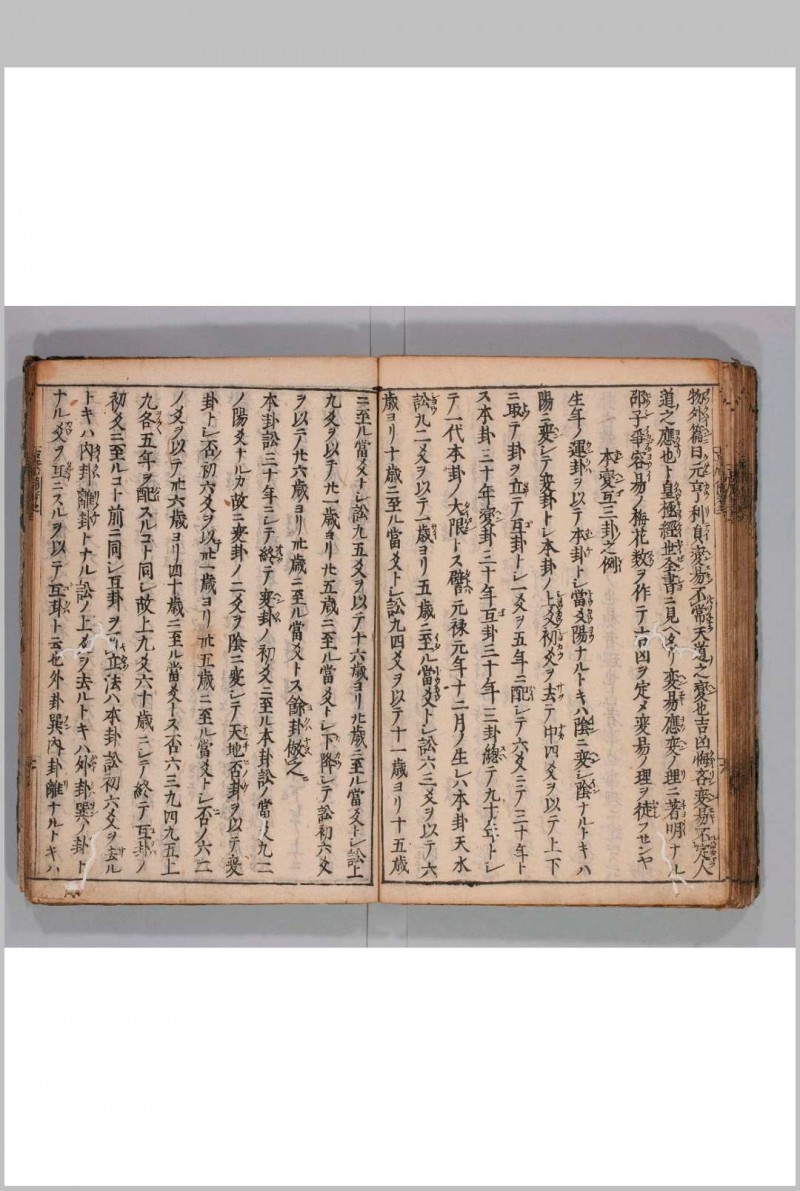 物外篇曰元亨利貞変易不常天道之変也吉凶悔吝変易不定人
道之應也ト皇極經世全書ニ見ヘタリ変易應変ノ理ニ著明ナル
邵子争容易ノ梅花数ヲ作テ吉凶ヲ定メ変易ノ理ヲ徒フセンヤ
本変互三卦之例
生年ノ運卦ヲ以テ本卦トシ當爻陽ナルトキハ陰ニ変シ陰ナルトキハ
陽ニ変シテ変卦トシ本卦ノ上爻初爻ヲ去テ中四爻ヲ以テ上下
ニ取テ卦ヲ立テ互卦トシ一爻ヲ五年ニ配シテ六爻ニテ三十年ト
ス本卦三十年変卦三十年互卦三十年三卦總テ九十年トシ
テ一代本卦ノ大限トス譬元禄元年十二月ノ生レハ本卦天水
訟九二爻ヲ以テ一歳ヨリ五歳ニ至ル當爻トシ訟六三爻ヲ以テ六
歳ヨリ十歳ニ至ル當爻トシ訟九四爻ヲ以テ十一歳ヨリ十五歳
ニ至ル當爻トシ訟九五爻ヲ以テ十六歳ヨリ廿歳ニ至ル當爻トシ訟上
九爻ヲ以テ廿一歳ヨリ廿五歳ニ至ル當爻トシ下降シテ訟初六爻
ヲ以テ廿六歳ヨリ卅歳ニ至ル當爻トス餘卦倣之
本卦訟三十年ニシテ終テ変卦ノ初爻ニ至ル本卦訟ノ當爻九二
ノ陽爻ナルカ故ニ変卦ノ二爻ヲ陰ニ変シテ天地否卦ヲ以テ変
卦トシ否初六爻ヲ以卅一歳ヨリ卅五歳ニ至ル當爻トシ否ノ六二
ノ爻ヲ以テ卅六歳ヨリ四十歳ニ至ル當爻トス否六三九四九五上
九各五年ヲ配スルコト同シ故上九爻六十歳ニシテ終テ互卦ノ
初爻ニ至ルコト前ニ同シ互卦ヲ立法ハ本卦訟初六爻ヲ去ル
トキハ内卦離卦トナル訟ノ上爻ヲ去ルトキハ外卦巽ノ卦ト
ナル爻ヲ互ニスルヲ以テ互卦ト云也外卦巽内卦離ナルトキハ